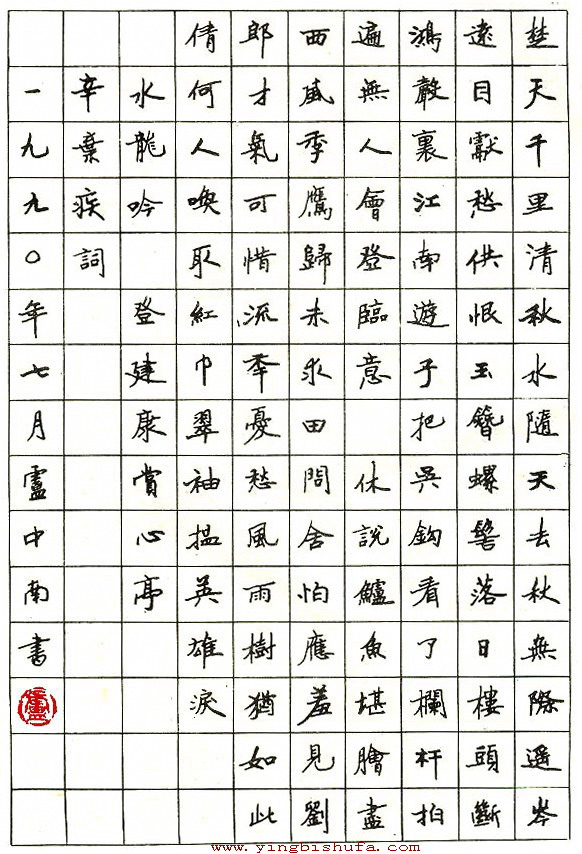 楚天千里清秋水隨天去秋無際遥岑
遠目獻愁供恨玉簪螺髻落日樓頭斷
鴻聲裏江南遊子把吳鈎看了欄杆拍
遍無人會登臨意 休說鱸魚堪膾盡
西風季鷹歸未求田問舍怕應羞見劉
郎才氣可惜流年憂愁風雨樹猶如此
倩何人喚取紅巾翠袖揾英雄淚
水龍吟 登建康賞心亭
辛棄疾詞
一九九〇年七月盧中南書
www.yingbishufa.com